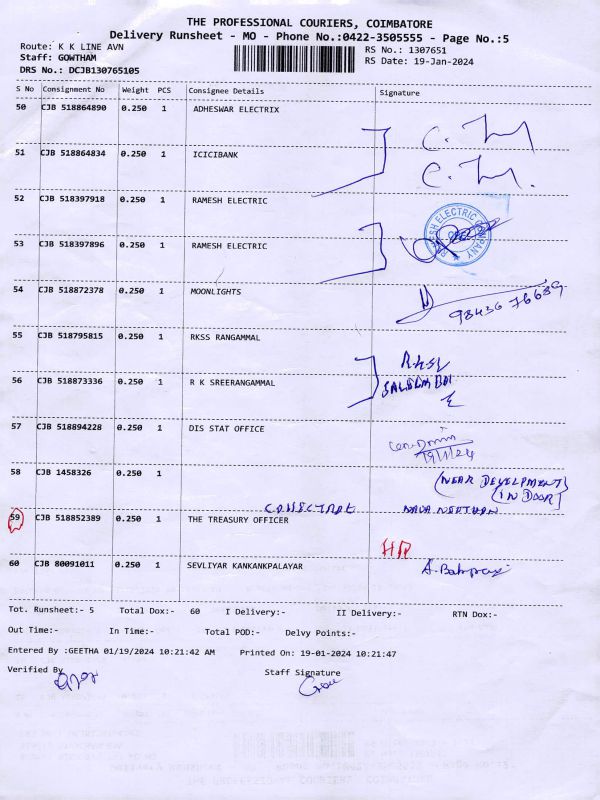 THE PROFESSIONAL COURIERS, COIMBATORE
Delivery Runsheet - MO - Phone No.:0422-3505555 - Page No.:5
Route: K K LINE AVN
RS No.: 1307651
Staff: GOWTHAM
RS Date: 19-Jan-2024
DRS No.: DCJB130765105
S No Consignment No Weight PCS Consignee Details Signature
50 CJB 518864890 0.250 1 ADHESWAR ELECTRIX
51 CJB 518864834 0.250 1 ICICIBANK
52 CJB 518397918 0.250 1 RAMESH ELECTRIC
RAMESH ELECTRIC COMPANY
53 CJB 518397896 0.250 1 RAMESH ELECTRIC
54 CJB 518872378 0.250 1 MOONLIGHTS
98436 76639
55 CJB 518795815 0.250 1 RKSS RANGAMMAL
56 CJB 518873336 0.250 1 R K SREERANGAMMAL
57 CJB 518894228 0.250 1 DIS STAT OFFICE
19/1/24
58 CJB 1458326 0.250 1
(NEAR DEVELPMENT)
(IN DOOR)
59 CJB 518852389 0.250 1 THE TREASURY OFFICER
60 CJB 80091011 0.250 1 SEVLIYAR KANKANKPALAYAR
Tot. Runsheet:- 5 Total Dox:- 60 I Delivery:- II Delivery:- RTN Dox:-
Out Time:- In Time:- Total POD:- Delvy Points:-
Entered By :GEETHA 01/19/2024 10:21:42 AM Printed On: 19-01-2024 10:21:47
Verified By Staff Signature